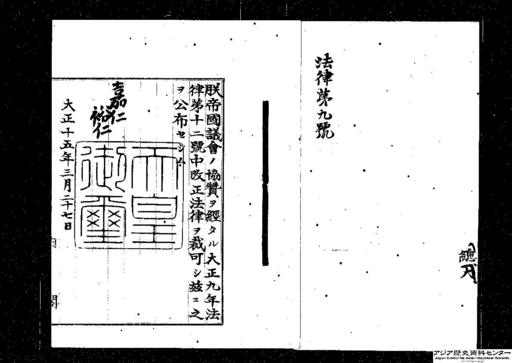 法律第九號
朕帝國議會ノ協贊ヲ經タル大正九年法
律第十二號中改正法律ヲ裁可シ玆ニ之
ヲ公布セシム
嘉仁
裕仁
天皇御璽
大正十五年三月二十七日
內閣
アジア歴史資料センター
Japan Center for Asian Historical Records